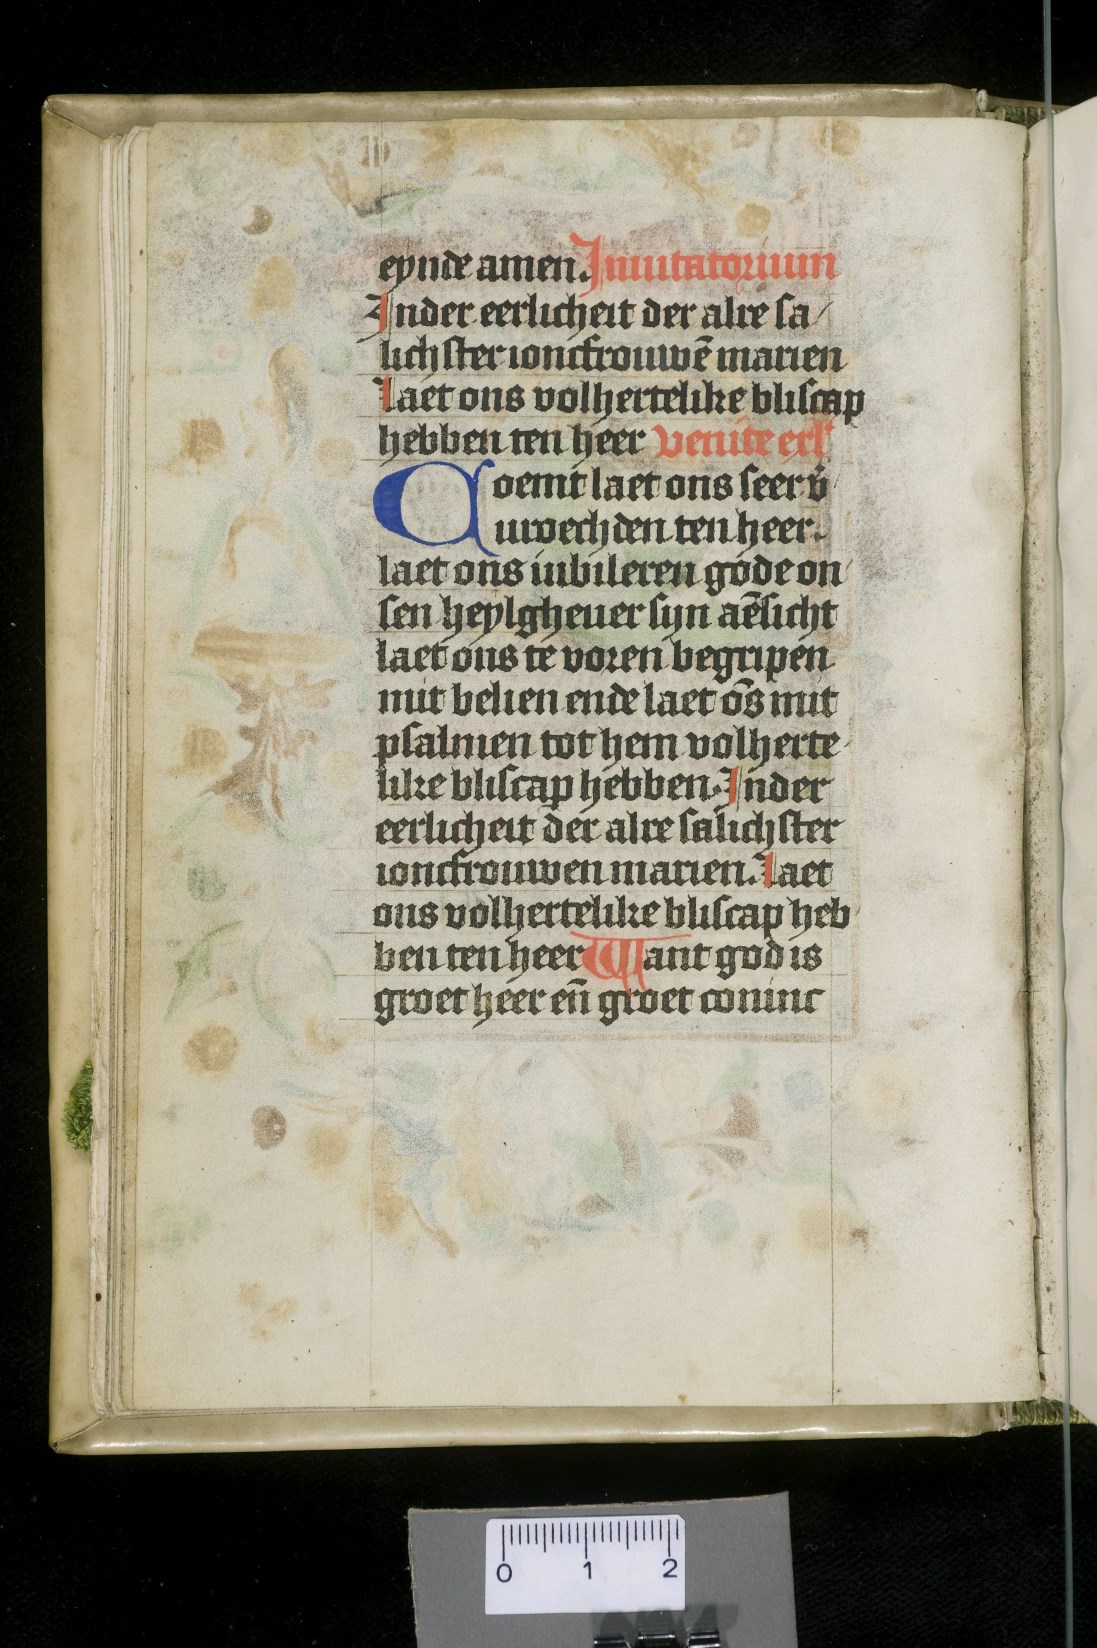 eynde amen. Inuitatorium
Inder eerlicheit der alre sa/
lichster ioncfrouwē marien
Laet ons volhertelike bliscap
hebben ten heer venite exl
Coemt laet ons seer v̄
uroechden ten heer.
laet ons iubileren gode on
sen heylgheuer sijn aēsicht
laet ons te voren begripen
mit belien ende laet ōs mit
psalmen tot hem volherte
like bliscap hebben. Inder
eerlicheit der alre salichster
ioncfrouwen marien. Laet
ons volhertelike bliscap heb
ben ten heer Want god is
groet heer eñ groet coninc
0 1 2